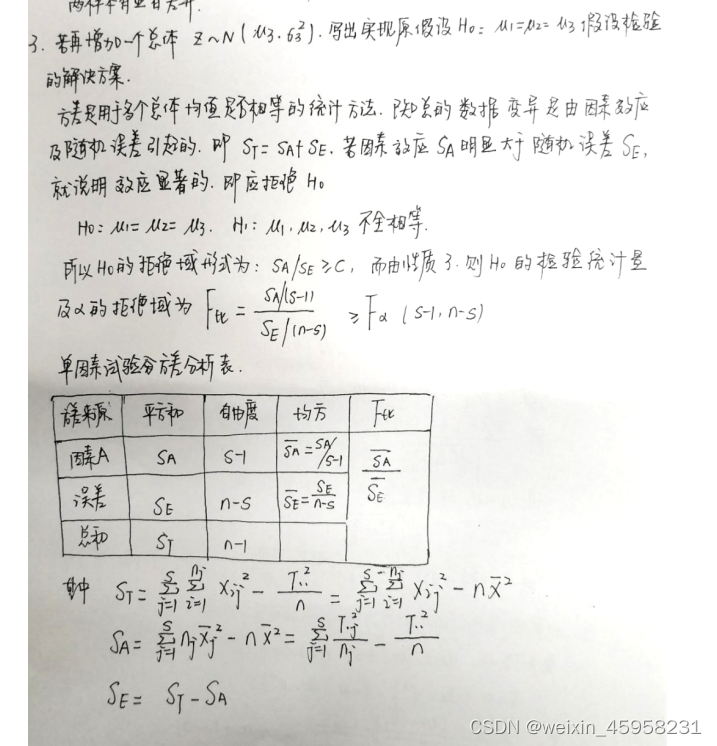 3. 若再增加一个总体 Z~N(μ3, σ3²). 写出实现原假设 H0: μ1=μ2=μ3 假设检验
的解决方案.
方差是用于多个总体均值是否相等的统计方法. 已知总的数据变异是由因素效应
及随机误差引起的. 即 ST=SA+SE. 若因素效应 SA 明显大于随机误差 SE,
就说明效应显著的. 即应拒绝 H0
H0: μ1=μ2=μ3. H1: μ1, μ2, μ3 不全相等.
所以 H0 的拒绝域形式为: SA/SE ≥ C, 而由性质3. 则 H0 的检验统计量
及 α 的拒绝域为 F比 = (SA/(s-1)) / (SE/(n-s)) ≥ Fα (s-1, n-s)
单因素试验分方差分析表.
方差来源 平方和 自由度 均方 F比
因素A SA s-1 S̄A=SA/s-1 S̄A/S̄E
误差 SE n-s S̄E=SE/n-s
总和 ST n-1
其中 ST = Σ(j=1..s) Σ(i=1..nj) Xij² - T..²/n = Σ(j=1..s) Σ(i=1..nj) Xij² - nX̄²
SA = Σ(j=1..s) nj X̄j² - nX̄² = Σ(j=1..s) T.j²/nj - T..²/n
SE = ST - SA
CSDN @weixin_45958231